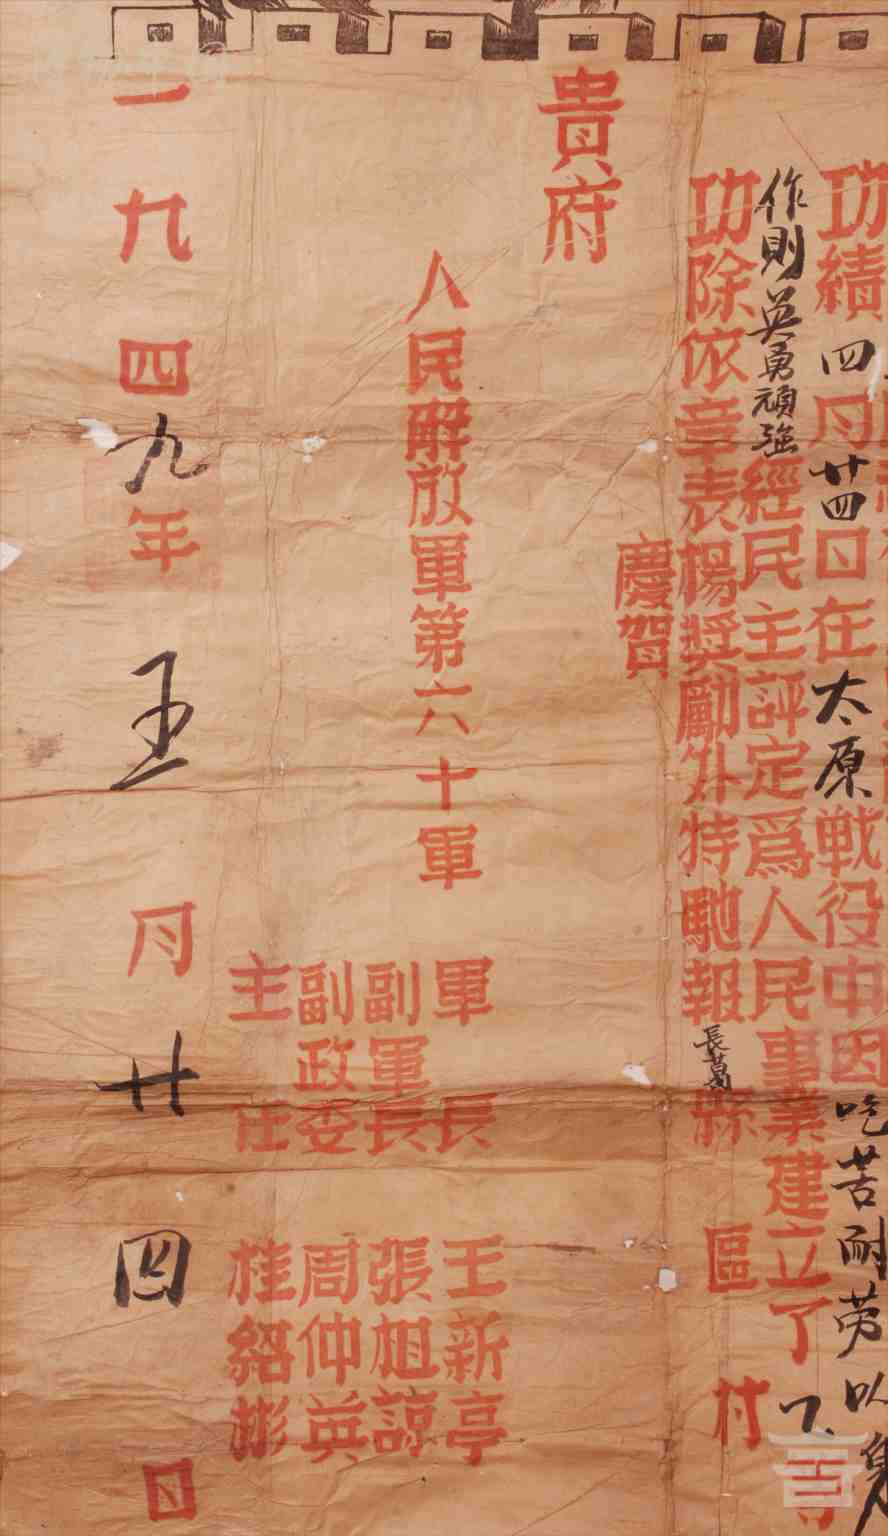 功績四月廿四日在太原戰役中因吃苦耐劳以身
作則英勇頑強經民主評定爲人民事業建立了
功除依章表楊獎勵外特馳報長葛縣區村
慶賀
貴府
人民解放軍第六十軍
軍長王新亭
副軍長張祖諒
副政委周仲英
主任桂紹彬
一九四九年五月廿四日